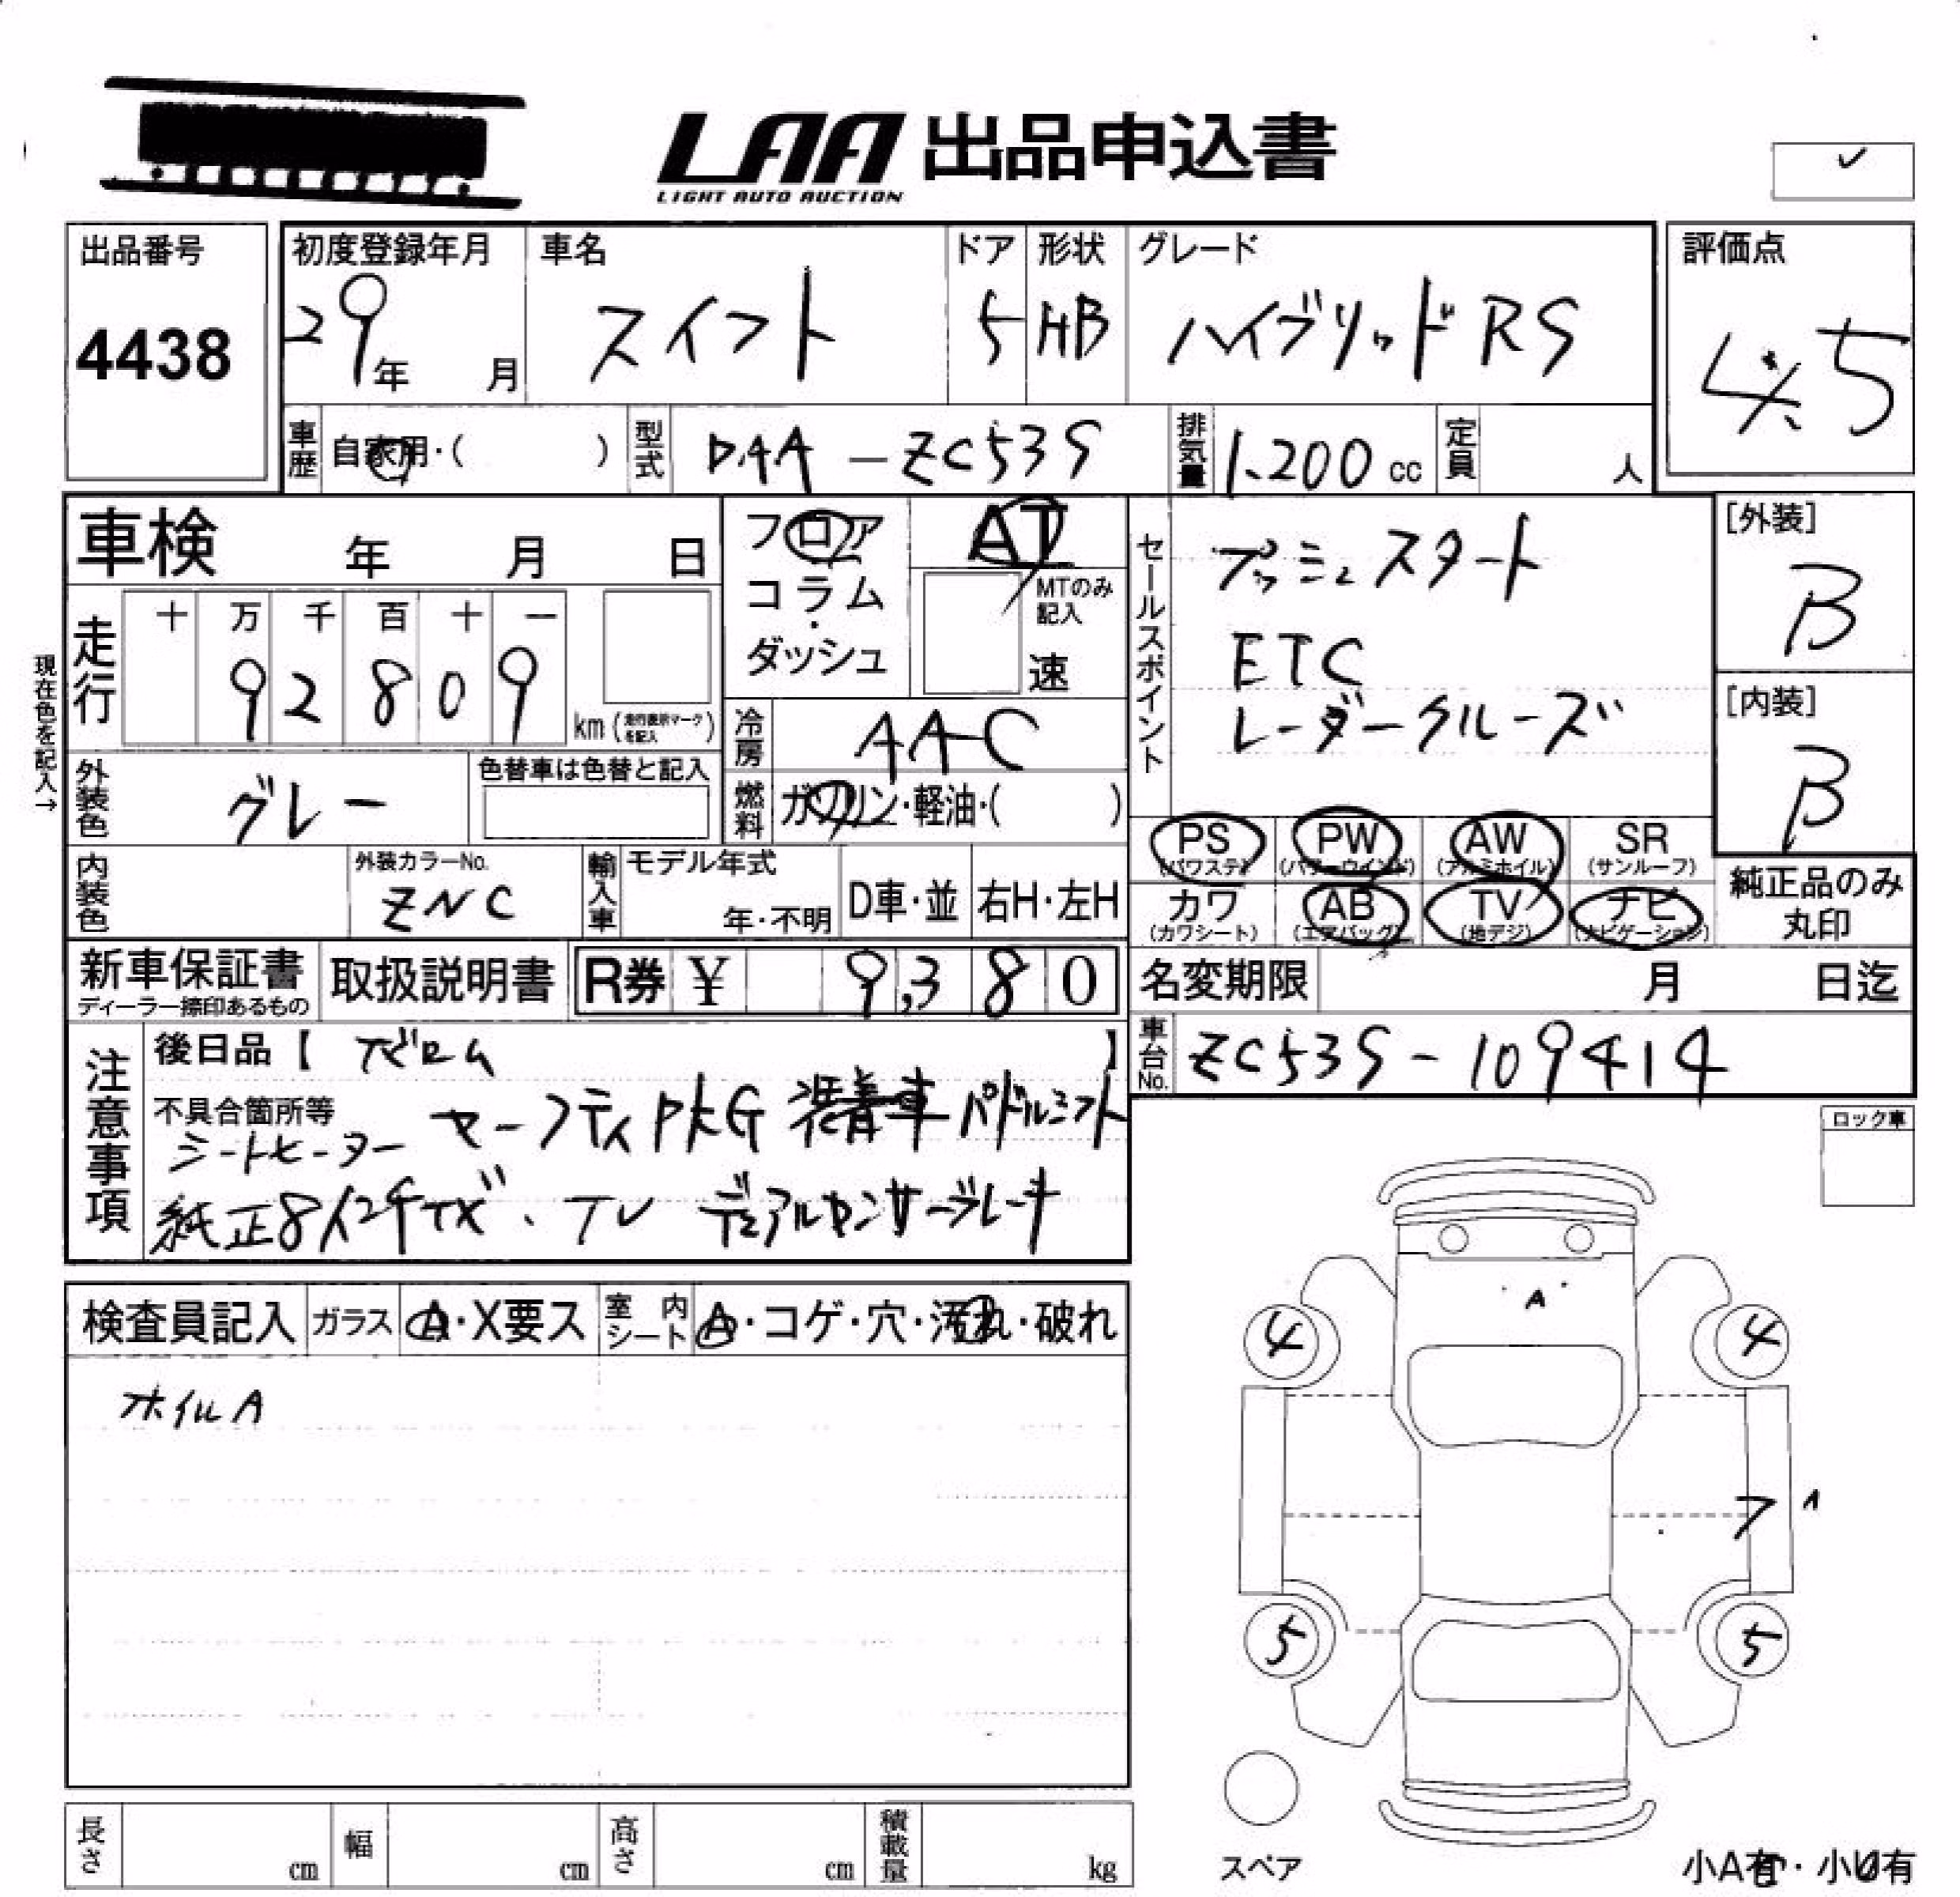 LAA 出品申込書
LIGHT AUTO AUCTION
出品番号
4438
初度登録年月
29年 月
車名
スイフト
ドア
5
形状
HB
グレード
ハイブリッド RS
評価点
4.5
車歴
自家用・( )
型式
DAA-ZC53S
排気量
1.200 cc
定員
人
車検 年 月 日
フロア
コラム
ダッシュ
AT
MTのみ記入
速
セールスポイント
プッシュスタート
ETC
レーダークルーズ
[外装]
B
[内装]
B
現在色を記入→
走行
十 万 千 百 十 一
9 2 8 0 9
km (走行表示マークを記入)
冷房
AAC
燃料
ガソリン・軽油・( )
外装色
グレー
色替車は色替と記入
内装色
外装カラーNo.
ZNC
輸入車
モデル年式
年・不明
D車・並
右H・左H
PS (パワステ)
PW (パワーウインド)
AW (アルミホイル)
SR (サンルーフ)
カワ (カワシート)
AB (エアバッグ)
TV (地デジ)
ナビ (ナビゲーション)
純正品のみ
丸印
新車保証書
ディーラー捺印あるもの
取扱説明書
R券 ¥ 9,380
名変期限 月 日迄
車台No.
ZC53S-109414
注意事項
後日品【 ナビロム 】
不具合箇所等
セーフティPKG 装着車 パドルシフト
シートヒーター
純正8インチナビ、TV デュアルセンサーブレーキ
ロック車
検査員記入
ガラス
A・X要ス
室内シート
A・コゲ・穴・汚れ・破れ
ホイルA
A
4
4
7
A
5
5
スペア
長さ cm
幅 cm
高さ cm
積載量 kg
小A有・小U有